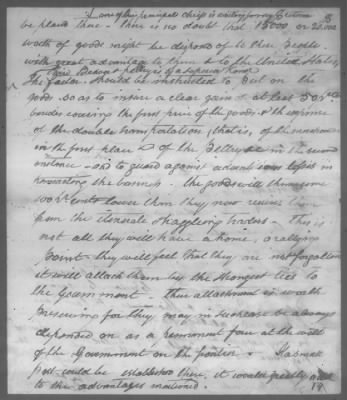 I am of the principal chiefs is writing for my Brethren
be placed there - there is no doubt that 15000 or 20.000
worth of goods might be disposed of to these people
with great advantage to them & to the United States
their Beaver & peltry is of a superior kind
The factor should be instructed to put on the
goods so as to insure a clear gain of at least 50 pr Ct
besides covering the first price of the goods & the expense
of the double transportation (that is, of the merchandise
in the first place & of the Peltry &c in the second
instance - and to guard against adventitious losses in
forwarding the bannes - the goods will then come
100 pr Cent lower than they now receive them
from the itenerate straggling traders - this is
not all they will have a home, or rallying
point - they will feel that they are not forgotten
it will attach them by the strongest ties to
the Government - their attachment is worth
preserving for they may in such case be always
depended on as a permanent force at the will
of the Government on the frontier - If a small
post could be established there, it would greatly add
to the advantages mentioned.